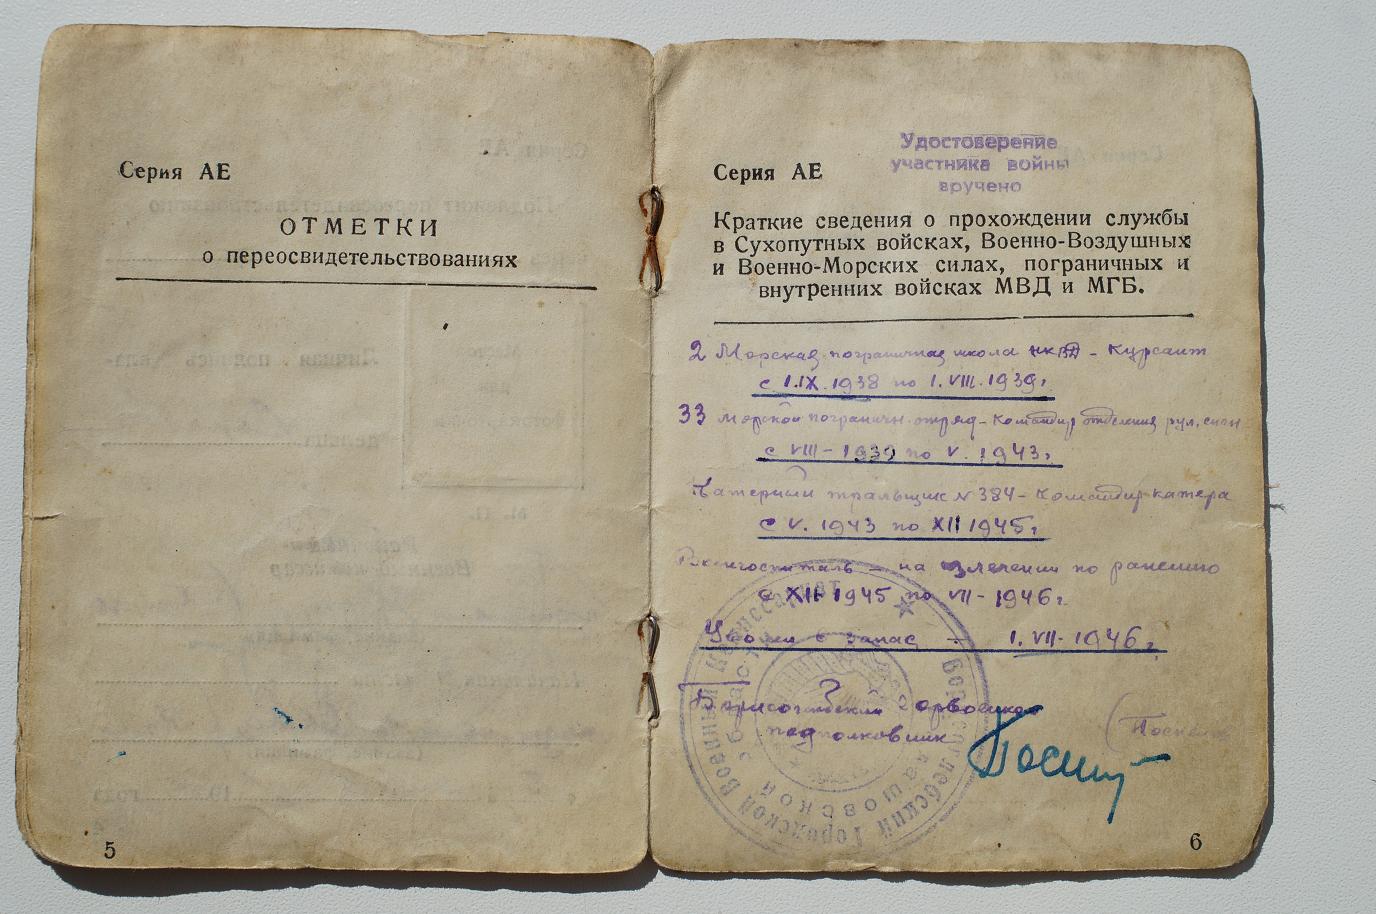 Серия АЕ
ОТМЕТКИ
о переосвидетельствованиях
5
Удостоверение
участника войны
вручено
Серия АЕ
Краткие сведения о прохождении службы
в Сухопутных войсках, Военно-Воздушных
и Военно-Морских силах, пограничных и
внутренних войсках МВД и МГБ.
2 Морская пограничная школа НКВД - Курсант
с 1.IX.1938 по 1.VIII.1939г.
33 морской пограничн. отряд - Командир отделения рул.
с VIII - 1939 по V. 1943г.
Катерный тральщик № 384 - Командир катера
с V. 1943 по XII 1945г.
госпиталь - на излечении по ранению
с XII 1945 по VII - 1946г.
Уволен в запас - 1. VII - 1946г.
Борисоглебский Горвоенком
подполковник
Борисоглебский Городской Военный Комиссариат
Балашовской области
6